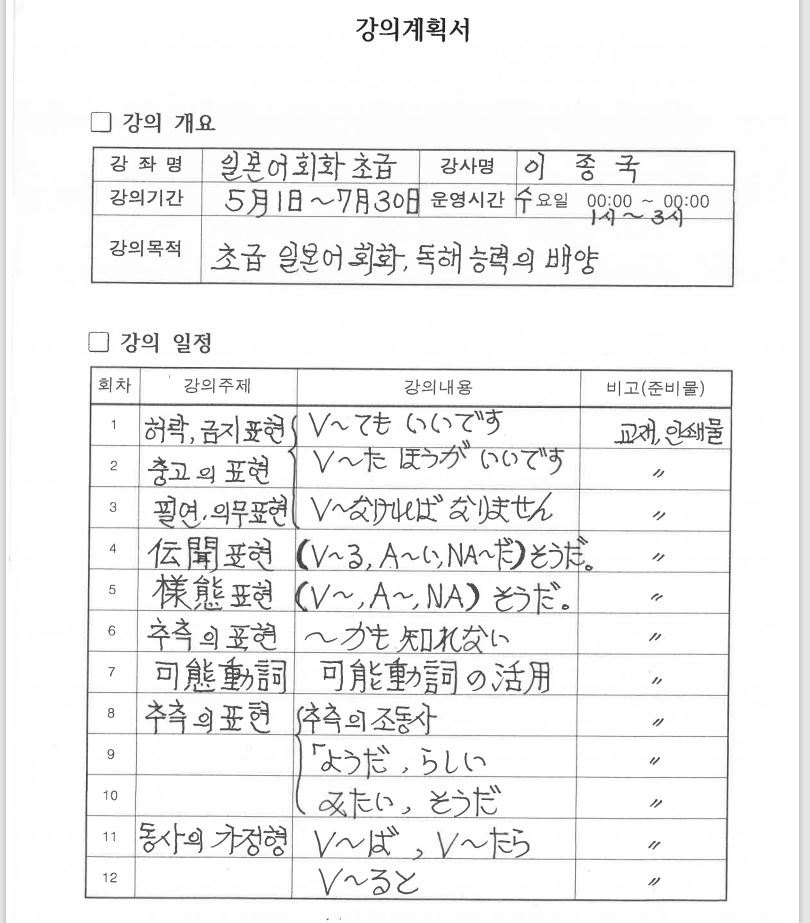 강의계획서
□ 강의 개요
강 좌 명 일본어회화 초급 강사명 이 종 국
강의기간 5月1日~7月30日 운영시간 수요일 00:00 ~ 00:00
1시~3시
강의목적 초급 일본어 회화, 독해 능력의 배양
□ 강의 일정
회차 강의주제 강의내용 비고(준비물)
1 허락, 금지표현 V~ても いいです 교재, 인쇄물
2 충고의 표현 V~た ほうが いいです 〃
3 필연·의무표현 V~なければ なりません 〃
4 伝聞 표현 (V~る, A~い, NA~だ) そうだ。 〃
5 様態 표현 (V~, A~, NA) そうだ。 〃
6 추측의 표현 ~かも 知れない 〃
7 可態動詞 可能動詞の活用 〃
8 추측의 표현 추측의 조동사 〃
9 「ようだ, らしい 〃
10 みたい, そうだ 〃
11 동사의 가정형 V~ば, V~たら 〃
12 V~ると 〃